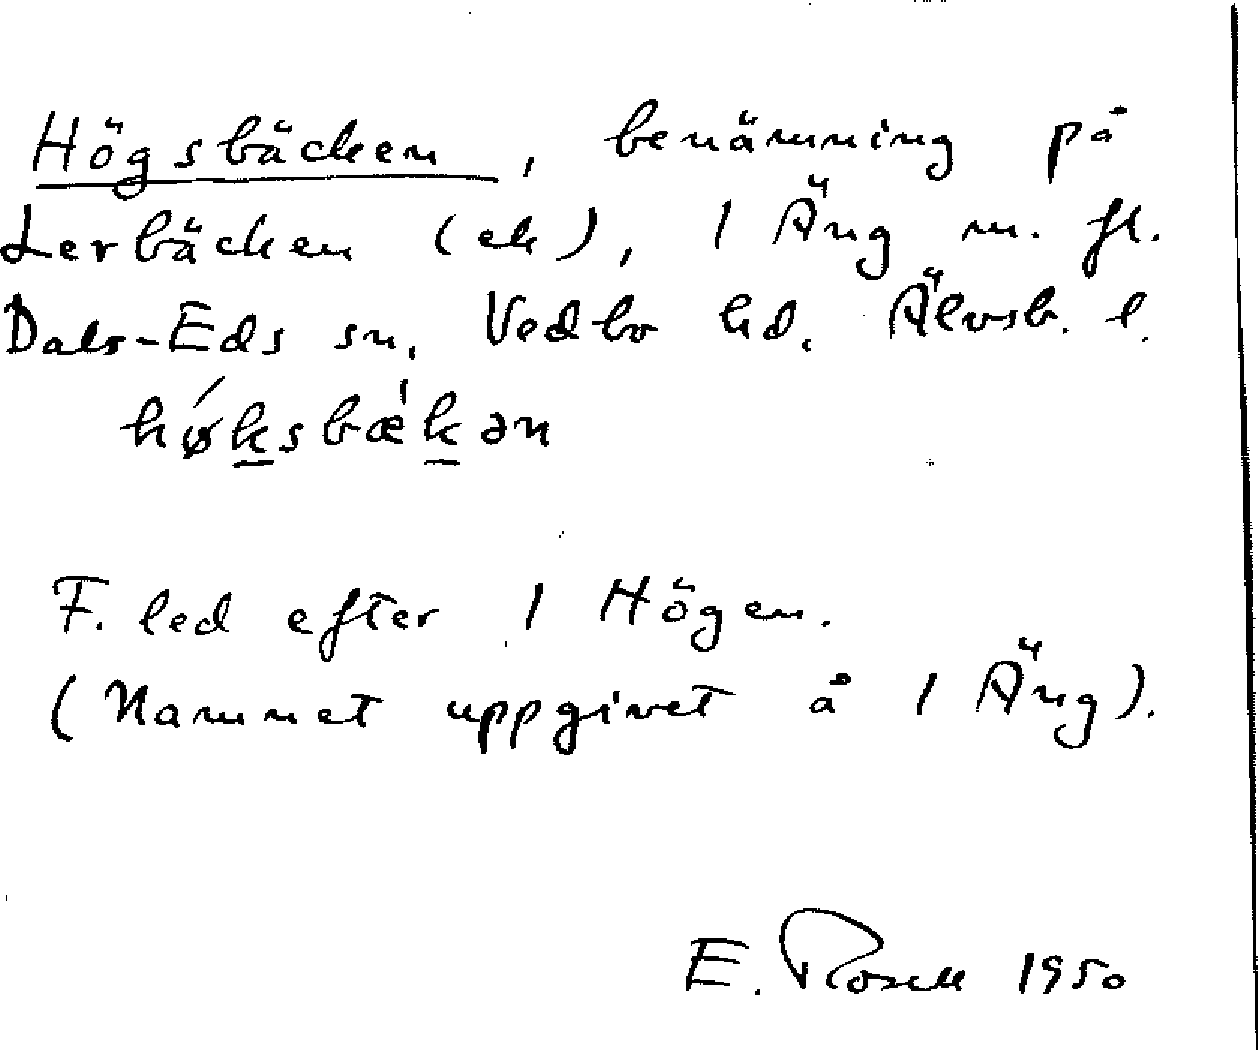 Högsbäcken, benämning på
Lerbäcken (ek), 1 Äng m. fl.
Dals-Eds sn, Vedbo hd. Älvsb. l.
hǿksbæ'kən
F. led efter 1 Högen.
(Namnet uppgivet å 1 Äng).
E. Rosell 1950